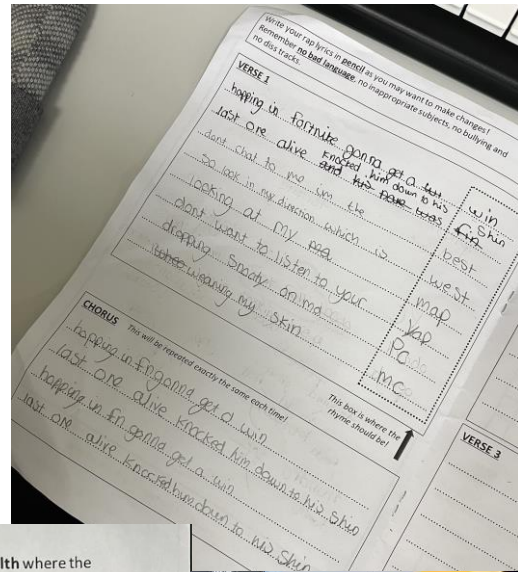 Write your rap lyrics in pencil as you may want to make changes!
Remember no bad language, no inappropriate subjects, no bullying and
no diss tracks.
VERSE 1
hopping in fortnite gonna get a win
last one alive knocked him down to his shin
dont chat to me um the best
so look in my direction which is west
looking at my map
dont want to listen to your yap
dropping snoopy on ma
wearing my skin mc
This box is where the
rhyme should be!
CHORUS This will be repeated exactly the same each time!
hopping in fn gonna get a win
last one alive knocked him down to his shin
hopping in fn gonna get a win
last one alive knocked him down to his shin
VERSE 3
lth where the